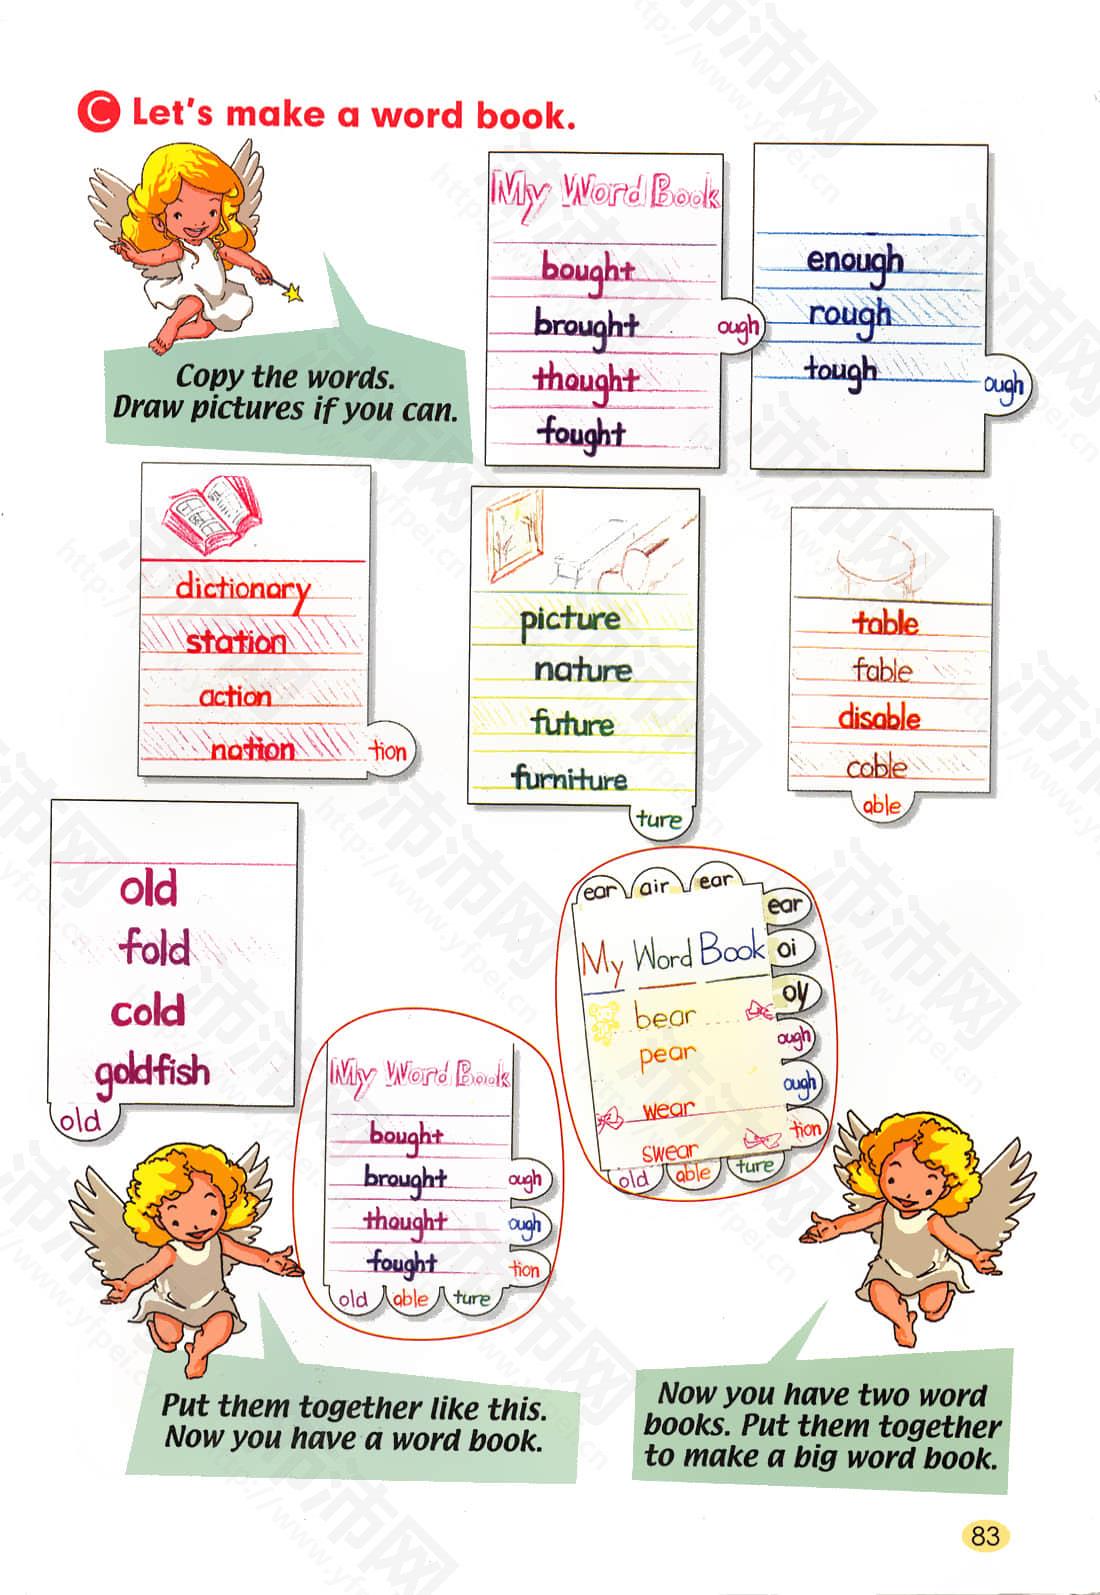 C Let's make a word book.
Copy the words.
Draw pictures if you can.
My Word Book
bought
brought
thought
fought
ough
enough
rough
tough
ough
dictionary
station
action
nation
tion
picture
nature
future
furniture
ture
table
fable
disable
cable
able
old
fold
cold
goldfish
old
My Word Book
bought
brought
thought
fought
ough
ough
tion
old able ture
ear air ear
ear
oi
oy
ough
ough
tion
My Word Book
bear
pear
wear
swear
old able ture
Put them together like this.
Now you have a word book.
Now you have two word
books. Put them together
to make a big word book.
83
沛沛网
http://www.yfpei.cn